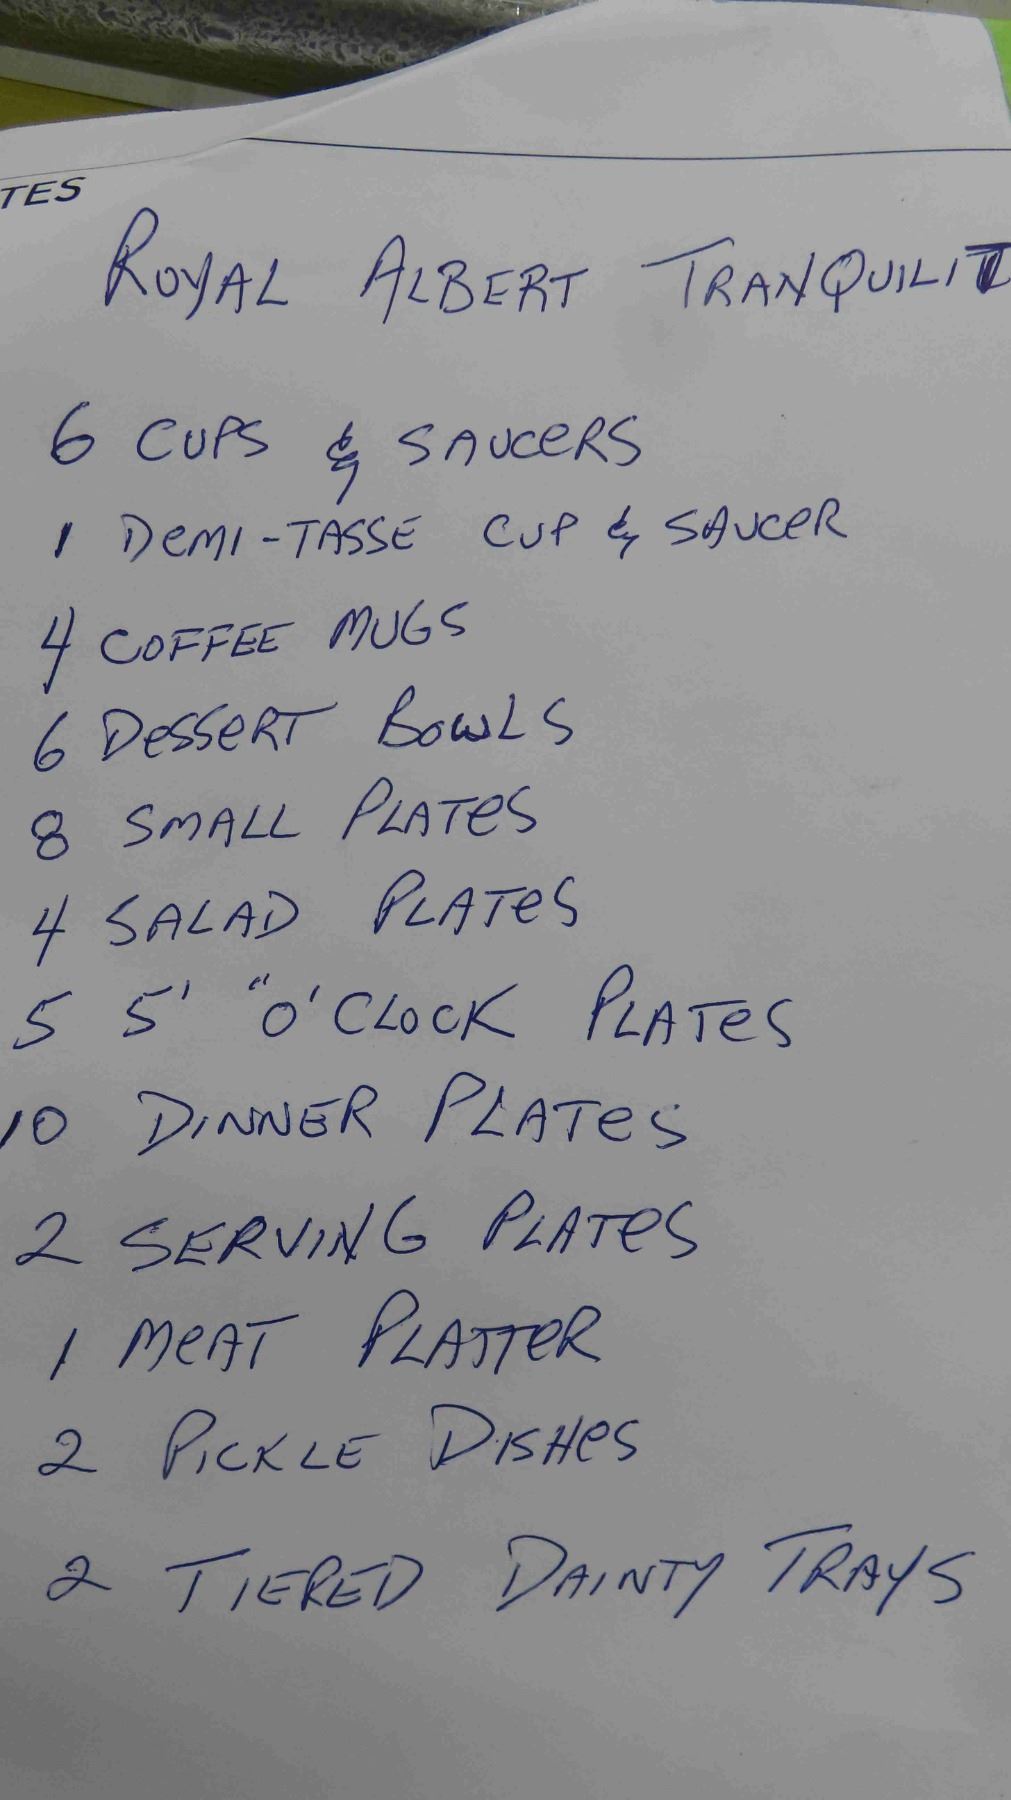 TES
ROYAL ALBERT TRANQUILIT
6 CUPS & SAUCERS
1 DEMI-TASSE CUP & SAUCER
4 COFFEE MUGS
6 DESSERT BOWLS
8 SMALL PLATES
4 SALAD PLATES
5 5' "O'CLOCK PLATES
10 DINNER PLATES
2 SERVING PLATES
1 MEAT PLATTER
2 PICKLE DISHES
2 TIERED DAINTY TRAYS